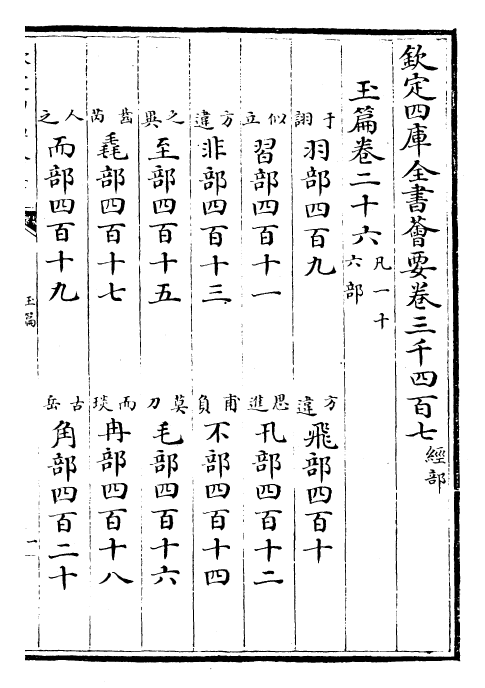 欽定四庫全書薈要卷三千四百七 經部
玉篇卷二十六 凡一十六部
于詡 羽部四百九 方違 飛部四百十
似立 習部四百十一 思進 卂部四百十二
方違 非部四百十三 甫負 不部四百十四
之異 至部四百十五 莫刀 毛部四百十六
齒芮 毳部四百十七 而琰 冉部四百十八
人之 而部四百十九 古岳 角部四百二十
玉篇
一